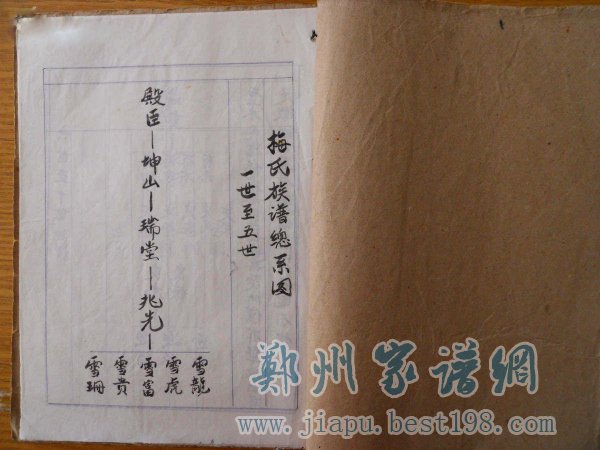 梅氏族谱總系图
一世至五世
殿臣—坤山—瑞堂—兆光—
雪龍
雪虎
雪富
雪贵
雪珊
鄭州家譜網
www.jiapu.best198.com